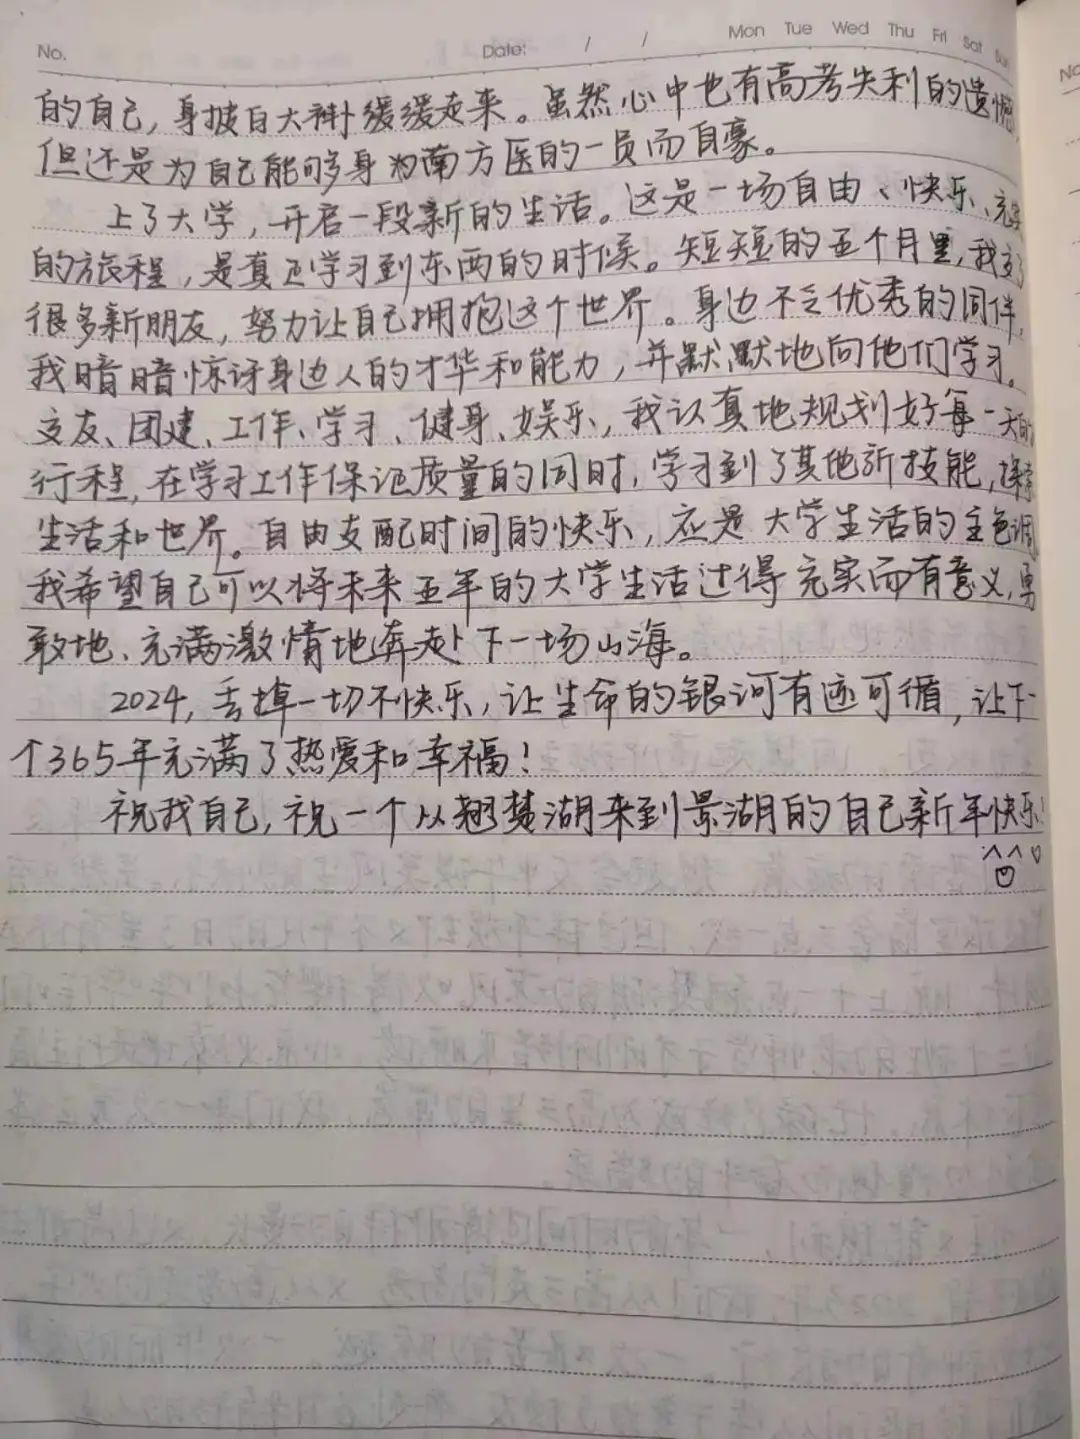 No.
Date: / /
Mon Tue Wed Thu Fri Sat Sun
的自己，身披白大褂缓缓走来。虽然心中也有高考失利的遗憾，
但还是为自己能够身为南方医的一员而自豪。
上了大学，开启一段新的生活。这是一场自由、快乐、充实
的旅程，是真正学习到东西的时候。短短的五个月里，我交了
很多新朋友，努力让自己拥抱这个世界。身边不乏优秀的同伴，
我暗暗惊讶身边人的才华和能力，并默默地向他们学习。
交友、团建、工作、学习、健身、娱乐，我认真地规划好每一天的
行程，在学习工作保证质量的同时，学习到了其他新技能，探索
生活和世界。自由支配时间的快乐，应是大学生活的主色调
我希望自己可以将未来五年的大学生活过得充实而有意义，勇
敢地、充满激情地奔赴下一场山海。
2024，丢掉一切不快乐，让生命的银河有迹可循，让下一
个365年充满了热爱和幸福！
祝我自己，祝一个从翘楚湖来到景湖的自己新年快乐！